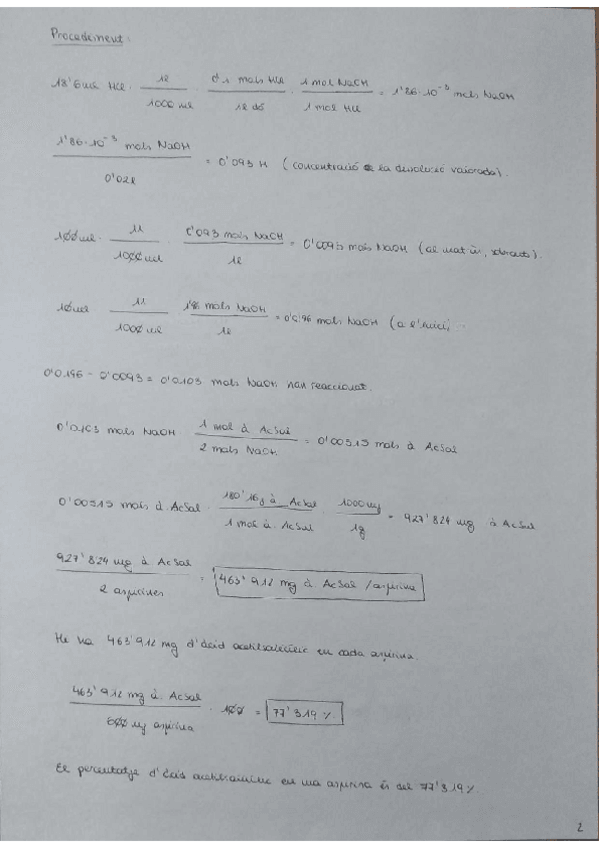 Procediment:
18'6 ml HCl · 1l / 1000 ml · 0'1 mols HCl / 1l dó · 1 mol NaOH / 1 mol HCl = 1'86·10⁻³ mols NaOH
1'86·10⁻³ mols NaOH / 0'02l = 0'093 M (concentració de la dissolució valorada).
100 ml · 1l / 1000 ml · 0'093 mols NaOH / 1l = 0'0093 mols NaOH (al matràs, sobrants).
10 ml 1l / 1000 ml 1'96 mols NaOH / 1l = 0'0196 mols NaOH (a l'inici)
0'0196 - 0'0093 = 0'0103 mols NaOH han reaccionat.
0'0103 mols NaOH 1 mol à AcSal / 2 mols NaOH = 0'00515 mols à AcSal
0'00515 mols à. AcSal · 180'16g à AcSal / 1 mol à. AcSal · 1000 mg / 1g = 927'824 mg à AcSal
927'824 mg à AcSal / 2 aspirines = 463'912 mg à AcSal / aspirina
Hi ha 463'912 mg d'àcid acetilsalicílic en cada aspirina.
463'912 mg à. AcSal / 600 mg aspirina · 100 = 77'319 %.
El percentatge d'àcid acetilsalicílic en una aspirina és del 77'319 %
2